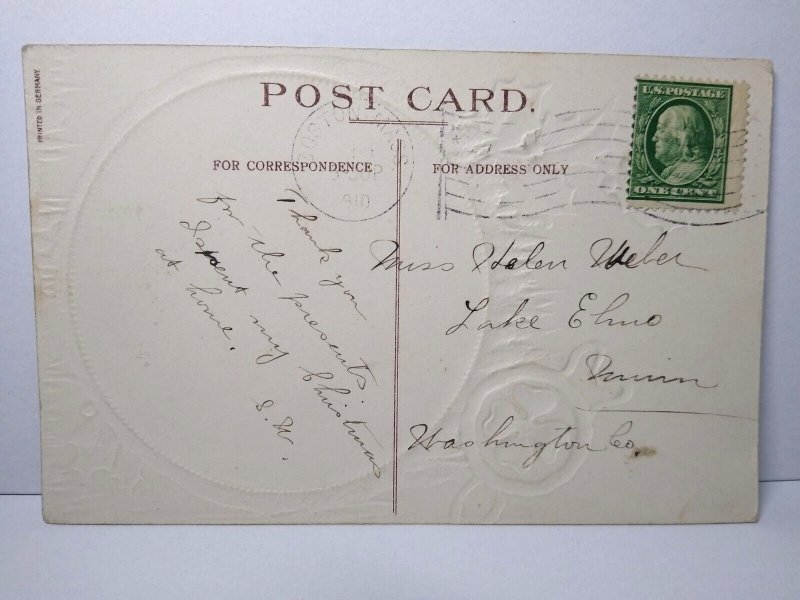 PRINTED IN GERMANY
POST CARD.
FOR CORRESPONDENCE
FOR ADDRESS ONLY
U.S. POSTAGE
ONE CENT
OSTON, MASS
910
Thank you
for the presents.
I spent my Christmas
at home.
I. W.
Miss Helen Weber
Lake Elmo
Minn
Washington Co.